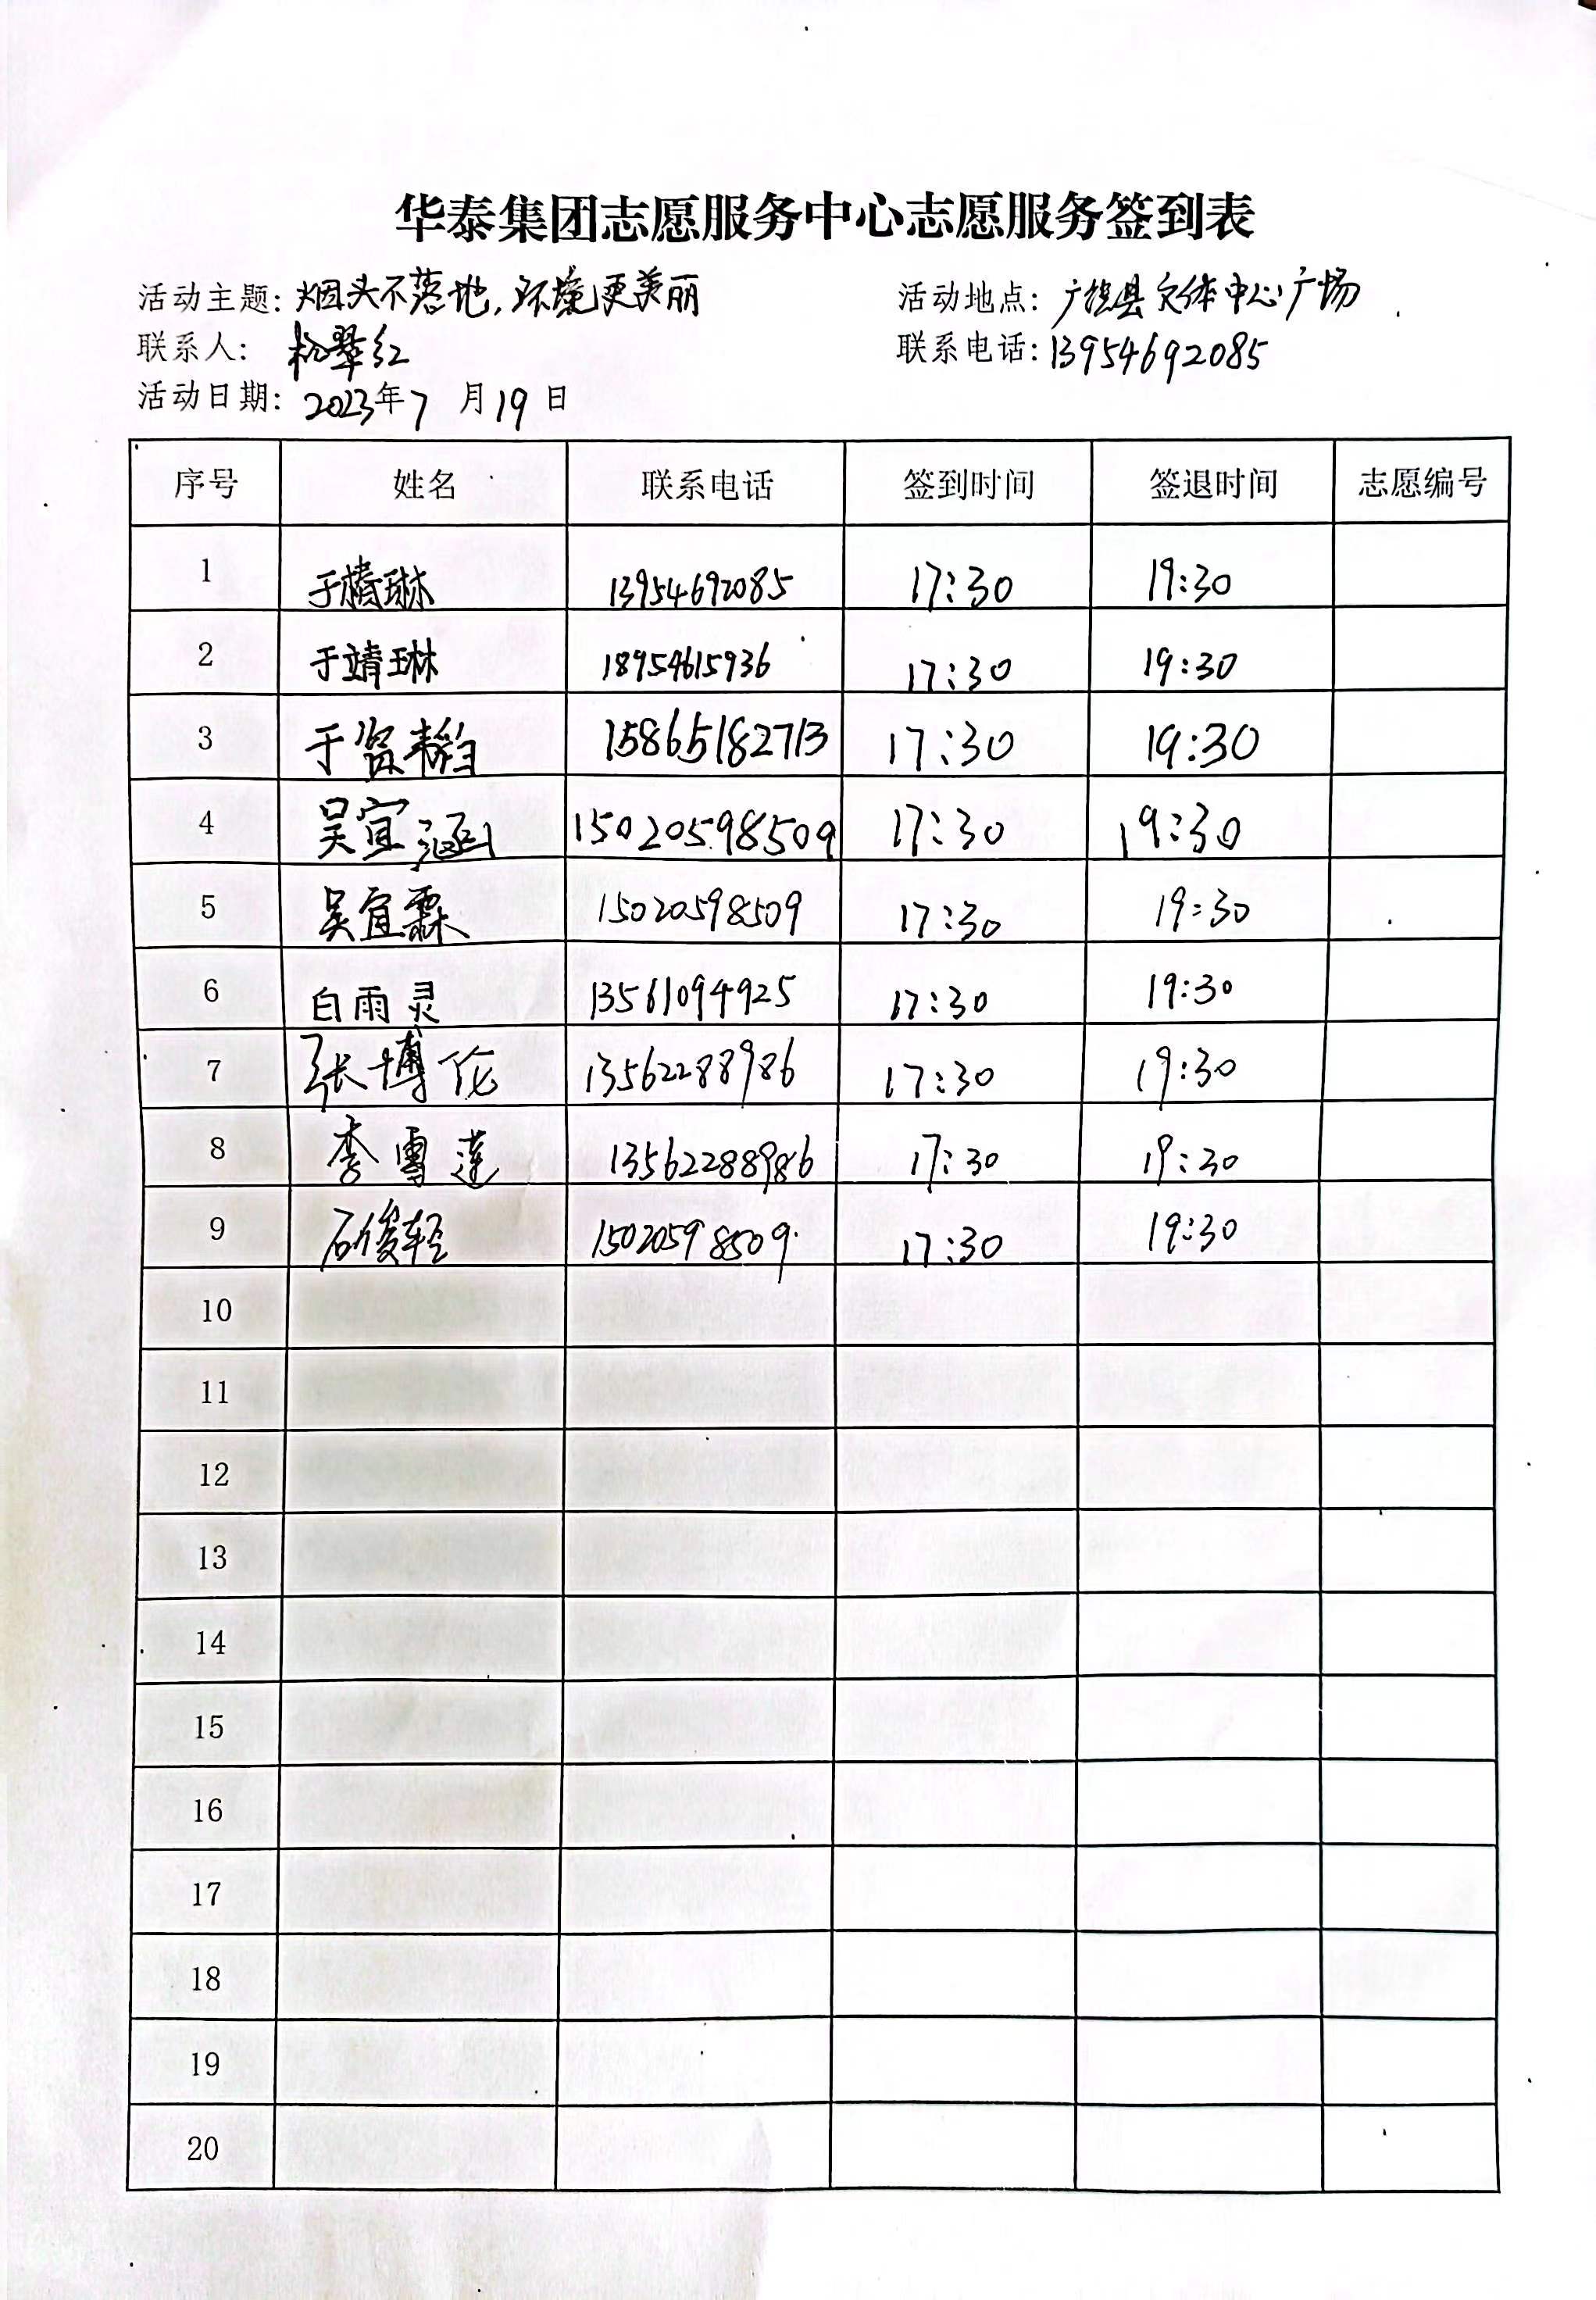 华泰集团志愿服务中心志愿服务签到表
活动主题：烟头不落地，环境更美丽 活动地点：广饶县文体中心广场
联系人：杨翠红 联系电话：13954692085
活动日期：2023年7月19日
序号 姓名 联系电话 签到时间 签退时间 志愿编号
1 于椅琳 13954692085 17:30 19:30
2 于靖琳 18954615936 17:30 19:30
3 于 15865182713 17:30 19:30
4 吴宜涵 15020598509 17:30 19:30
5 吴宜霖 15020598509 17:30 19:30
6 白雨灵 13561094925 17:30 19:30
7 张博伦 13562288986 17:30 19:30
8 李雪莲 13562288986 17:30 19:30
9 石俊轻 15020598509 17:30 19:30
10
11
12
13
14
15
16
17
18
19
20